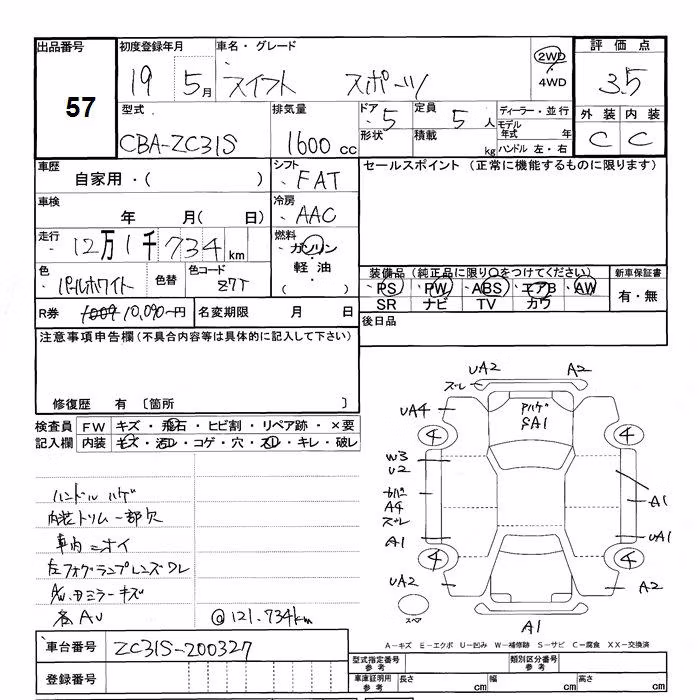 出品番号 初度登録年月 車名・グレード 評価点
57 19 5月 スイフト スポーツ 2WD 4WD 3.5
型式 排気量 ドア 定員 ディーラー・並行 外装 内装
CBA-ZC31S 1600cc 5 5人 モデル年式 年 C C
形状 積載 kg ハンドル 左・右
車歴 シフト セールスポイント (正常に機能するものに限ります)
自家用・( ) FAT
車検 冷房
年 月( 日) AAC
走行 燃料
12万1千734km ガソリン
軽油
色 色替 色コード ( ) 装備品(純正品に限り○をつけてください) 新車保証書
パールホワイト Z7T PS PW ABS エアB AW 有・無
SR ナビ TV カワ
R券 10,090円 名変期限 月 日 後日品
注意事項申告欄(不具合内容等は具体的に記入して下さい)
修復歴 有 〔箇所 〕
検査員 FW キズ・飛石・ヒビ割・リペア跡・×要
記入欄 内装 キズ・汚レ・コゲ・穴・スレ・キレ・破レ
ハンドル ハゲ
内装トリム一部欠
車内ニオイ
左フォグランプレンズワレ
A/W.ドミラーキズ
各AU @121.734km
UA2 A2
ズレ
UA4 ハゲ SA1
4 4
W3
U2
A4 A1
ズレ
A1 UA1
4 4
UA2 A2
スペア
A1
A-キズ E-エクボ U-凹み W-補修跡 S-サビ C-腐食 XX-交換済
車台番号 ZC31S-200327
登録番号
型式指定番号 参考 類別区分番号 参考
車庫証明用 参考 長さ cm 幅 cm 高さ cm